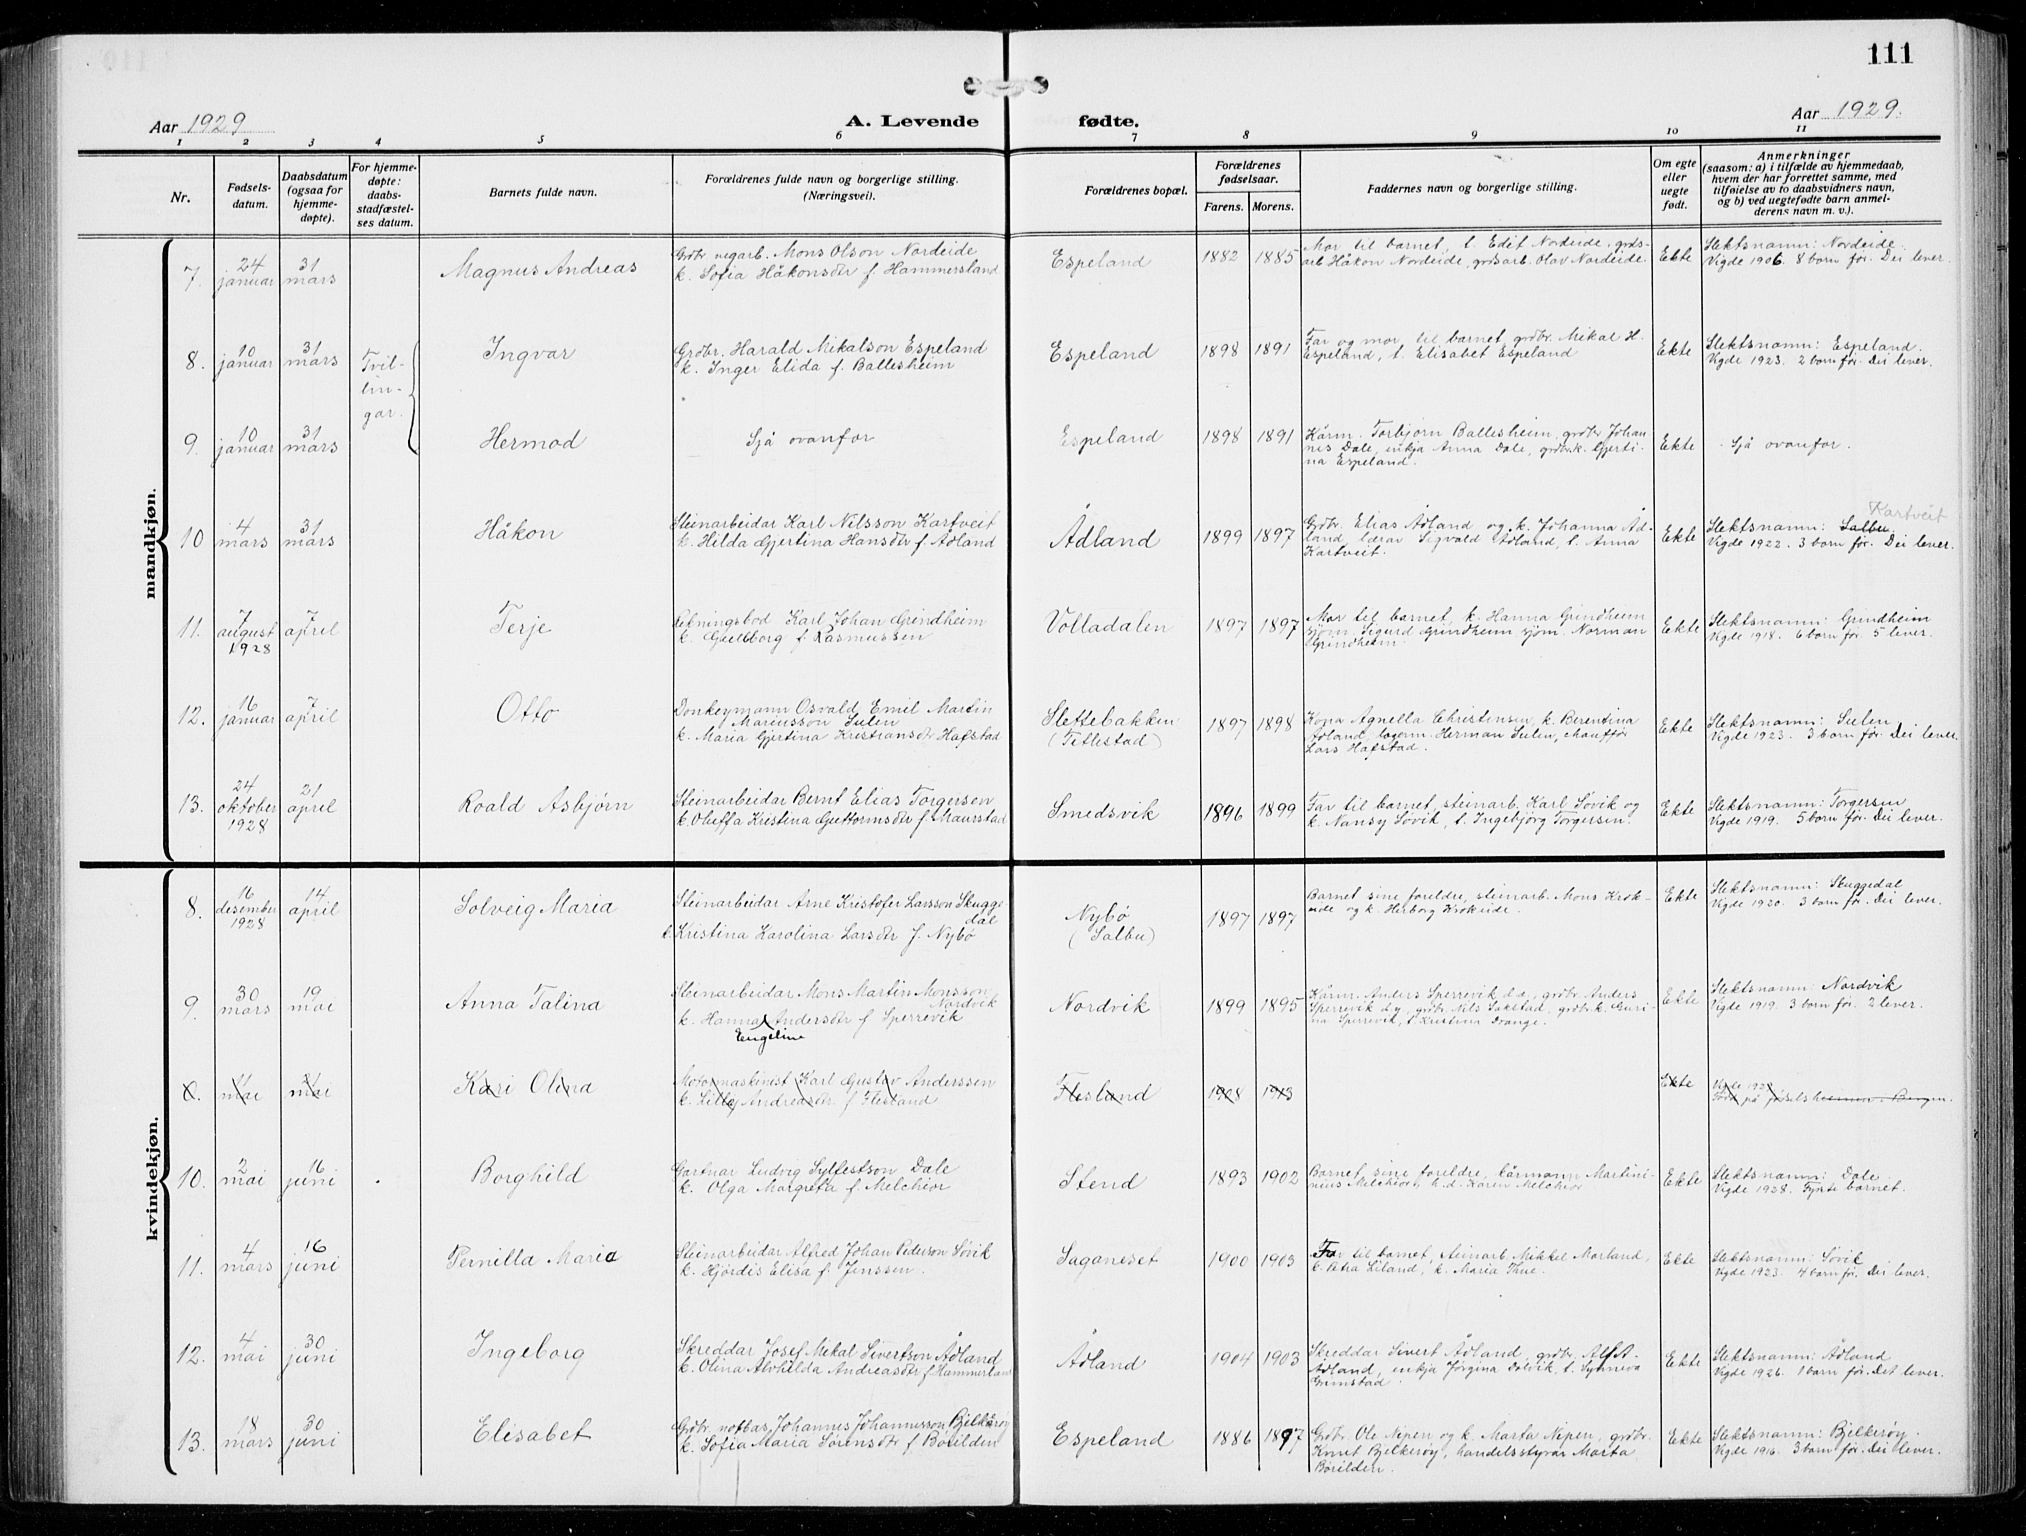 111
Aar 1929
A. Levende
fødte.
Aar 1929.
1 2 3 4 5 6 7 8 9 10 11
Nr.
Fødsels-
datum.
Daabsdatum
(ogsaa for
hjemme-
døpte).
For hjemme-
døpte:
daabs-
stadfæstel-
ses datum.
Barnets fulde navn.
Forældrenes fulde navn og borgerlige stilling.
(Næringsvei).
Forældrenes bopæl.
Forældrenes
fødselsaar.
Farens. Morens.
Faddernes navn og borgerlige stilling.
Om egte
eller
uegte
født.
Anmerkninger
(saasom: a) i tilfælde av hjemmedaab,
hvem der har forrettet samme, med
tilføielse av to daabsvidners navn,
og b) ved uegtefødte barn anmel-
derens navn m. v.).
mandkjøn.
7.
24
januar
31
mars
Magnus Andreas
Grdbr. vegarb. Mons Olson Nordeide
k. Sofia Håkonsdtr f. Hammersland
Espeland
1882 1885
Mor til barnet, t. Edit Nordeide, grds-
arb Håkon Nordeide, grdsarb. Olav Nordeide.
Ekte
Slektsnamn: Nordeide.
Vigde 1906. 8 born før. Dei lever.
8.
10
januar
31
mars
Tvil-
lin-
gar.
Ingvar
Grdbr. Harald Mikalson Espeland
k. Inger Elida f. Ballesheim
Espeland
1898 1891
Far og mor til barnet, grdbr. Mikal H.
Espeland, t. Elisabet Espeland
Ekte
Slektsnamn: Espeland.
Vigde 1923. 2 born før. Dei lever.
9.
10
januar
31
mars
Hermod
Sjå ovanfor
Espeland
1898 1891
Kårm. Torbjørn Ballesheim, grdbr Johan-
nes Dale, enkja Anna Dale, grdbr.k. Gjerti-
na Espeland.
Ekte
Sjå ovanfor.
10
4
mars
31
mars
Håkon
Steinarbeidar Karl Nilsson Kartveit
k. Hilda Gjertina Hansdtr f. Ådland
Ådland
1899 1897
Grdbr. Elias Ådland og k. Johanna Åd-
land, lærar Sigvald Ådland, t. Anna
Kartveit.
Ekte
Kartveit
Slektsnamn: Salbu.
Vigde 1922. 3 born før. Dei lever.
11.
7
august
1928
7
april
Terje
Karl Johan Grindheim
k. f. Rasmussen
Volladalen
1897 1897
Mor til barnet, k. Hanna Grindheim
sjøm. Sigurd Grindheim sjøm. Norman
Grindheim.
Ekte
Slektsnamn: Grindheim
Vigde 1918. 6 born før. 5 lever.
12.
16
januar
7
april
Otto
Donkeymann Osvald Emil Martin
Mariusson Sulen
k. Maria Gjertina Kristiansdtr Hafstad
Slettebakken
(Tillestad)
1897 1898
Kona Agnella Christensen, k. Berentina
Ådland, lagerm. Herman Sulen, chauffør
Lars Hafstad.
Ekte
Slektsnamn: Sulen.
Vigde 1923. 3 born før. Dei lever.
13.
24
oktober
1928
21
april
Roald Asbjørn
Steinarbeidar Bernt Elias Torgersen
k. Oluffa Kristina Guttormsdtr f. Maurstad
Smedsvik
1896 1899
Far til barnet, steinarb. Karl Søvik og
k. Nansy Søvik, t. Ingebjørg Torgersen.
Ekte
Slektsnamn: Torgersen
Vigde 1919. 5 born før. Dei lever.
kvindekjøn.
8.
16
desember
1928
14
april
Solveig Maria
Steinarbeidar Arne Kristofer Larsson Skugge
dal
k. Kristina Karolina Larsdtr f. Nybø
Nybø
(Salbu)
1897 1897
Barnet sine foreldre, steinarb. Mons Krok-
eide og k. Herborg Krokeide.
Ekte
Slektsnamn: Skuggedal
Vigde 1920. 3 born før. Dei lever.
9.
30
mars
19
mai
Anna Talina
Steinarbeidar Mons Martin Monsson
Nordvik
k. Hanna Andersdtr f. Sperrevik
Engeline
Nordvik
1899 1895
Kårm. Anders Sperrevik d.e., grdbr. Anders
Sperrevik d.y., grdbr. Nils Sakstad, grdbr.k. Guri-
na Sperrevik, t. Kristina Drange.
Ekte
Slektsnamn: Nordvik
Vigde 1919. 3 born før. 2 lever.
8.
11
mai
mai
Kari Olina
Motormaskinist Karl Gustav Anderssen
k. Lilly Andreasdtr. f. Flesland
Flesland
1908 1913
Ekte
Vigde
Fødd på fødselsheimen i Bergen.
10.
2
mai
16
juni
Borghild
Gartnar Ludvig Sylfestson Dale
k. Olga Margreta f. Melchior
Stend
1893 1902
Barnet sine foreldre, kårmann Martini-
nius Melchior, h.d. Karen Melchior
Ekte
Slektsnamn: Dale.
Vigde 1928. Fyrste barnet.
11.
4
mars
16
juni
Pernilla Maria
Steinarbeidar Alfred Johan Pederson Søvik
k. Hjørdis Elisa f. Jenssen.
Saganeset
1900 1903
Far til barnet, steinarb. Mikkel Morland,
k. Petra Liland, k. Maria Thue.
Ekte
Slektsnamn: Søvik
Vigde 1923. 4 born før. Dei lever.
12.
4
mai
30
juni
Ingeborg
Skreddar Josef Mikal Sivertson Ådland
k. Olina Alvhilda Andreasdtr f. Hammerland
Ådland
1904 1903
Skreddar Sivert Ådland, grdbr. Alf A.
Ådland, enkja Jørgina Dalvik, t. Synneva
Grimstad.
Ekte
Slektsnamn: Ådland
Vigde 1926. 1 born før. Det lever.
13.
18
mars
30
juni
Elisabet
Grdbr. notbas Johannes Johannesson Bjelkarøy
k. Sofia Maria Sørensdtr f. Børilden
Espeland
1886 1897
Grdbr. Ole Nipen og k. Marta Nipen, grdbr.
Knut Bjelkerøy, handelsstyrar Marta
Børilden.
Ekte
Slektsnamn: Bjelkerøy.
Vigde 1916. 3 born før. Dei lever.